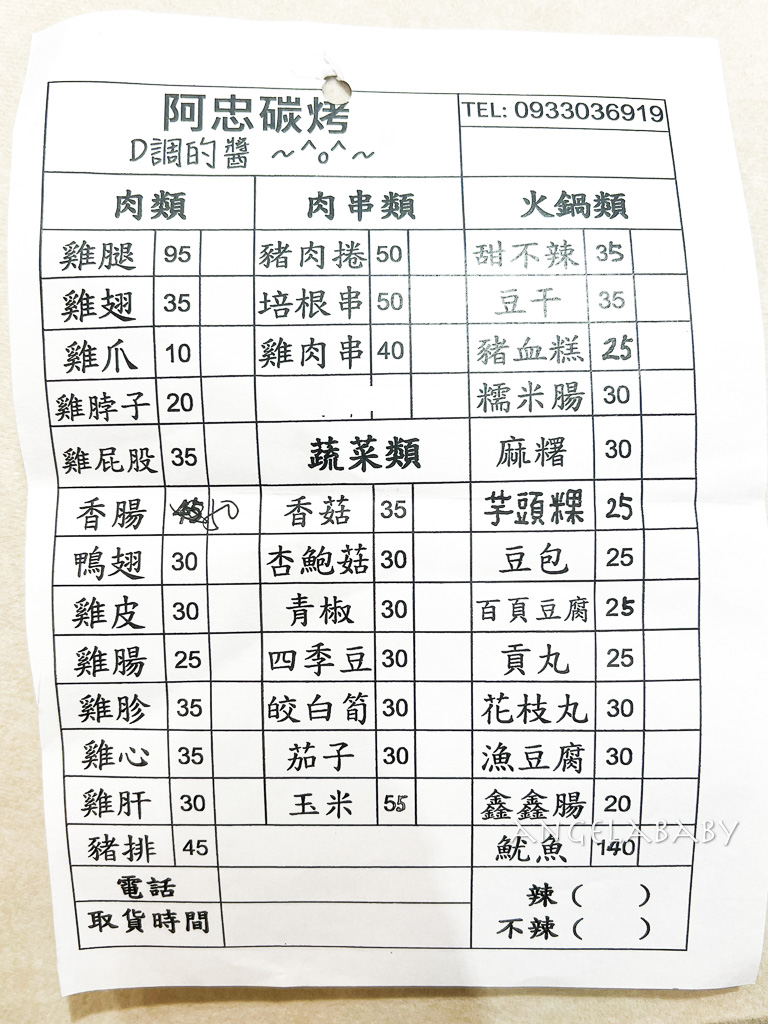 阿忠碳烤
D調的醬 ~^o^~
TEL: 0933036919
肉類 肉串類 火鍋類
雞腿 95 豬肉捲 50 甜不辣 35
雞翅 35 培根串 50 豆干 35
雞爪 10 雞肉串 40 豬血糕 25
雞脖子 20 糯米腸 30
雞屁股 35 蔬菜類 麻糬 30
香腸 45 50 香菇 35 芋頭粿 25
鴨翅 30 杏鮑菇 30 豆包 25
雞皮 30 青椒 30 百頁豆腐 25
雞腸 25 四季豆 30 貢丸 25
雞胗 35 皎白筍 30 花枝丸 30
雞心 35 茄子 30 漁豆腐 30
雞肝 30 玉米 55 鑫鑫腸 20
豬排 45 魷魚 140
電話 辣 ( )
取貨時間 不辣 ( )
ANGELABABY